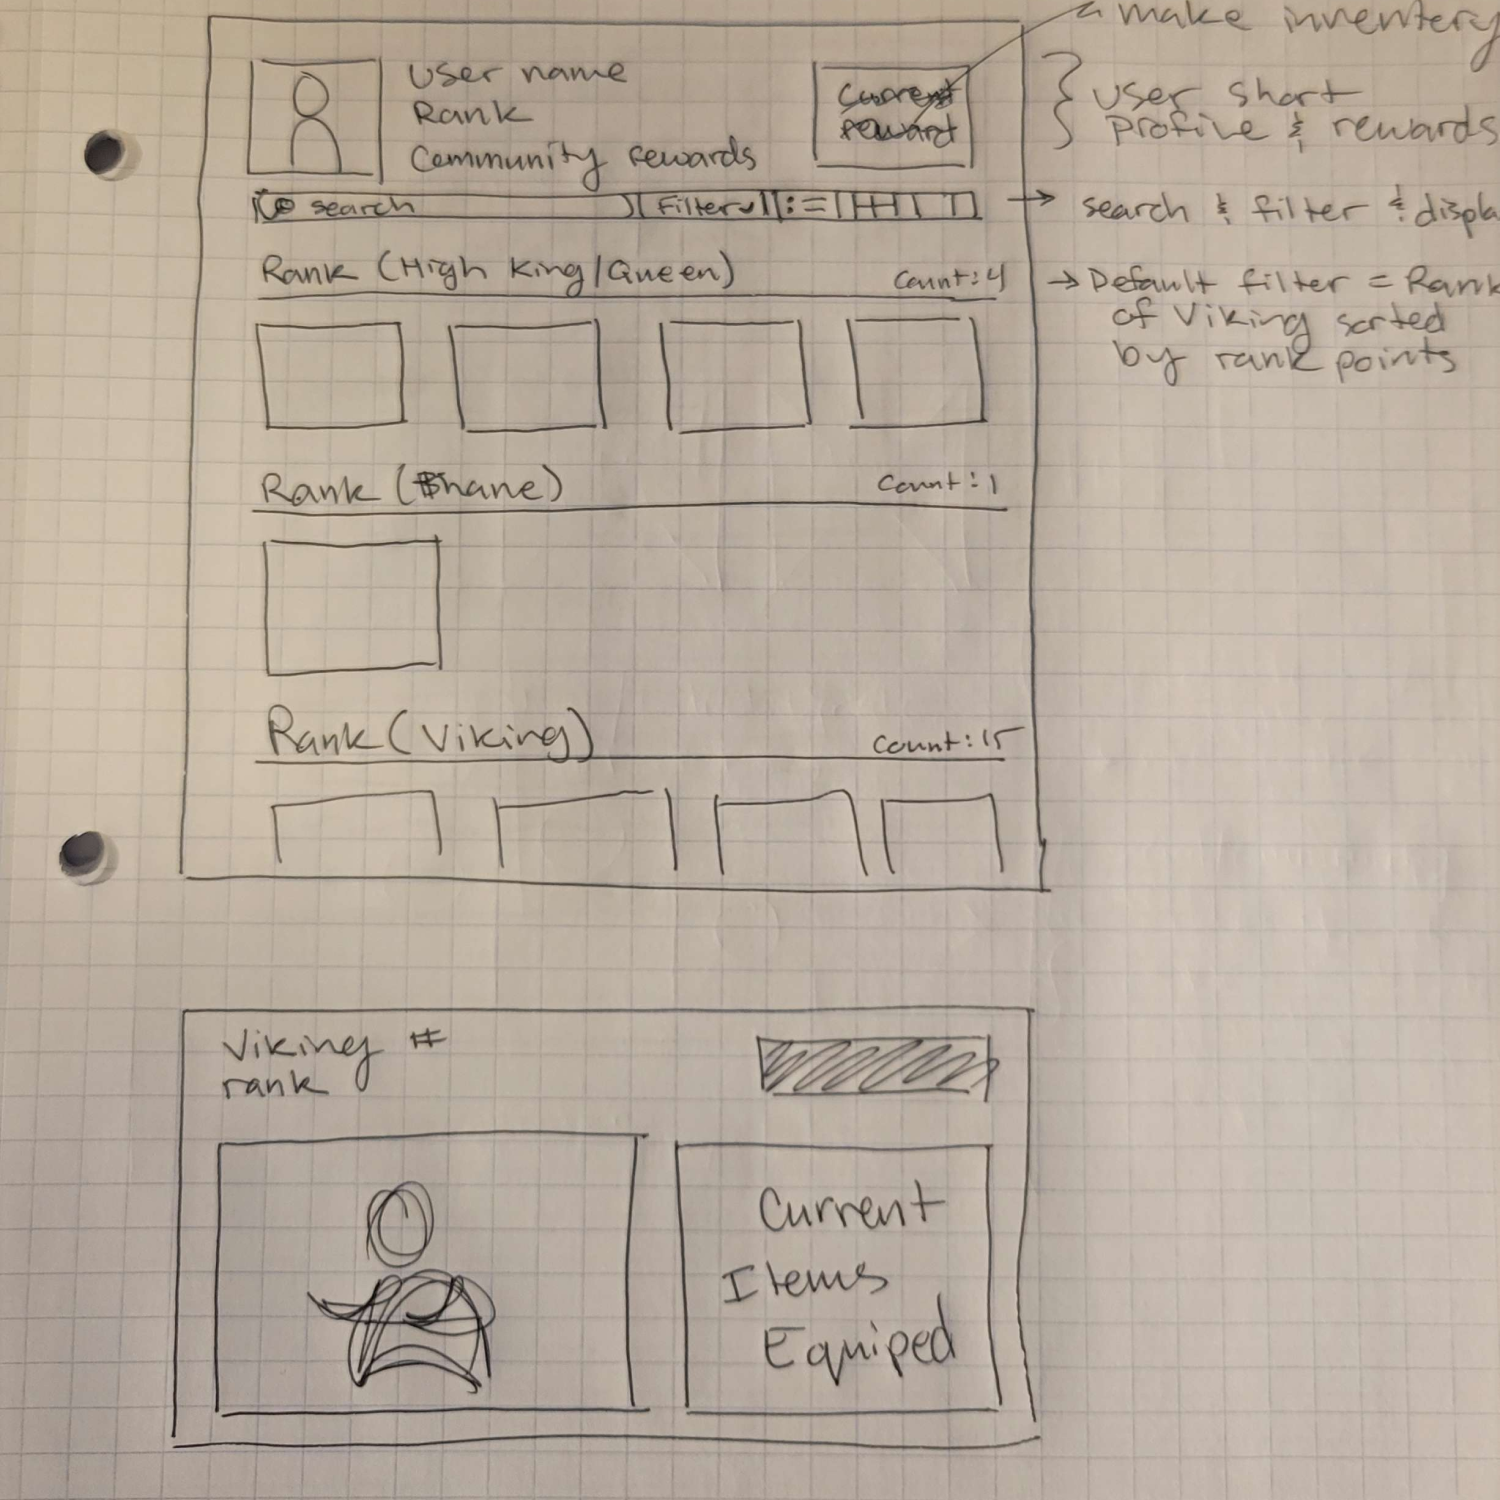 make inventery
User name
Rank
Community rewards
Current
reward
User short
Profile & rewards
search
Filter
search & filter & displa
Rank (High King/Queen)
Count: 4
Default filter = Rank
of Viking sorted
by rank points
Rank (Thane)
Count: 1
Rank (Viking)
Count: 15
Viking #
rank
Current
Items
Equiped